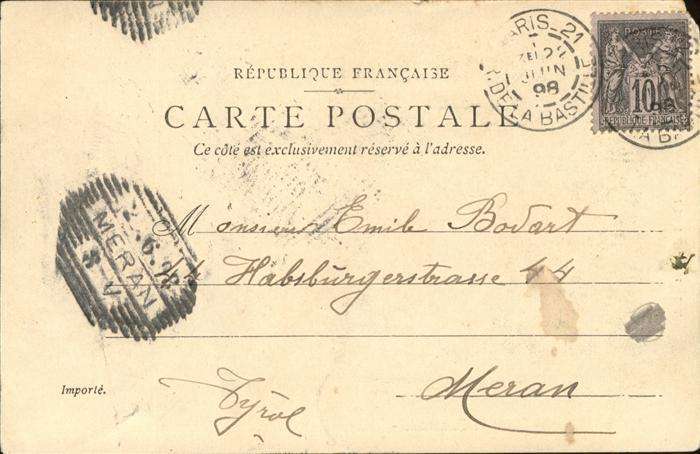 PARIS-21
22
JUIN
98
R. DE LA BASTILLE
POSTES
10
REPUBLIQUE FRANÇAISE
RÉPUBLIQUE FRANÇAISE
CARTE POSTALE
Ce côté est exclusivement réservé à l'adresse.
MERAN
6.98
Monsieur Emile Bodart
Habsburgerstrasse 44
Meran
Importé.
Tyrol